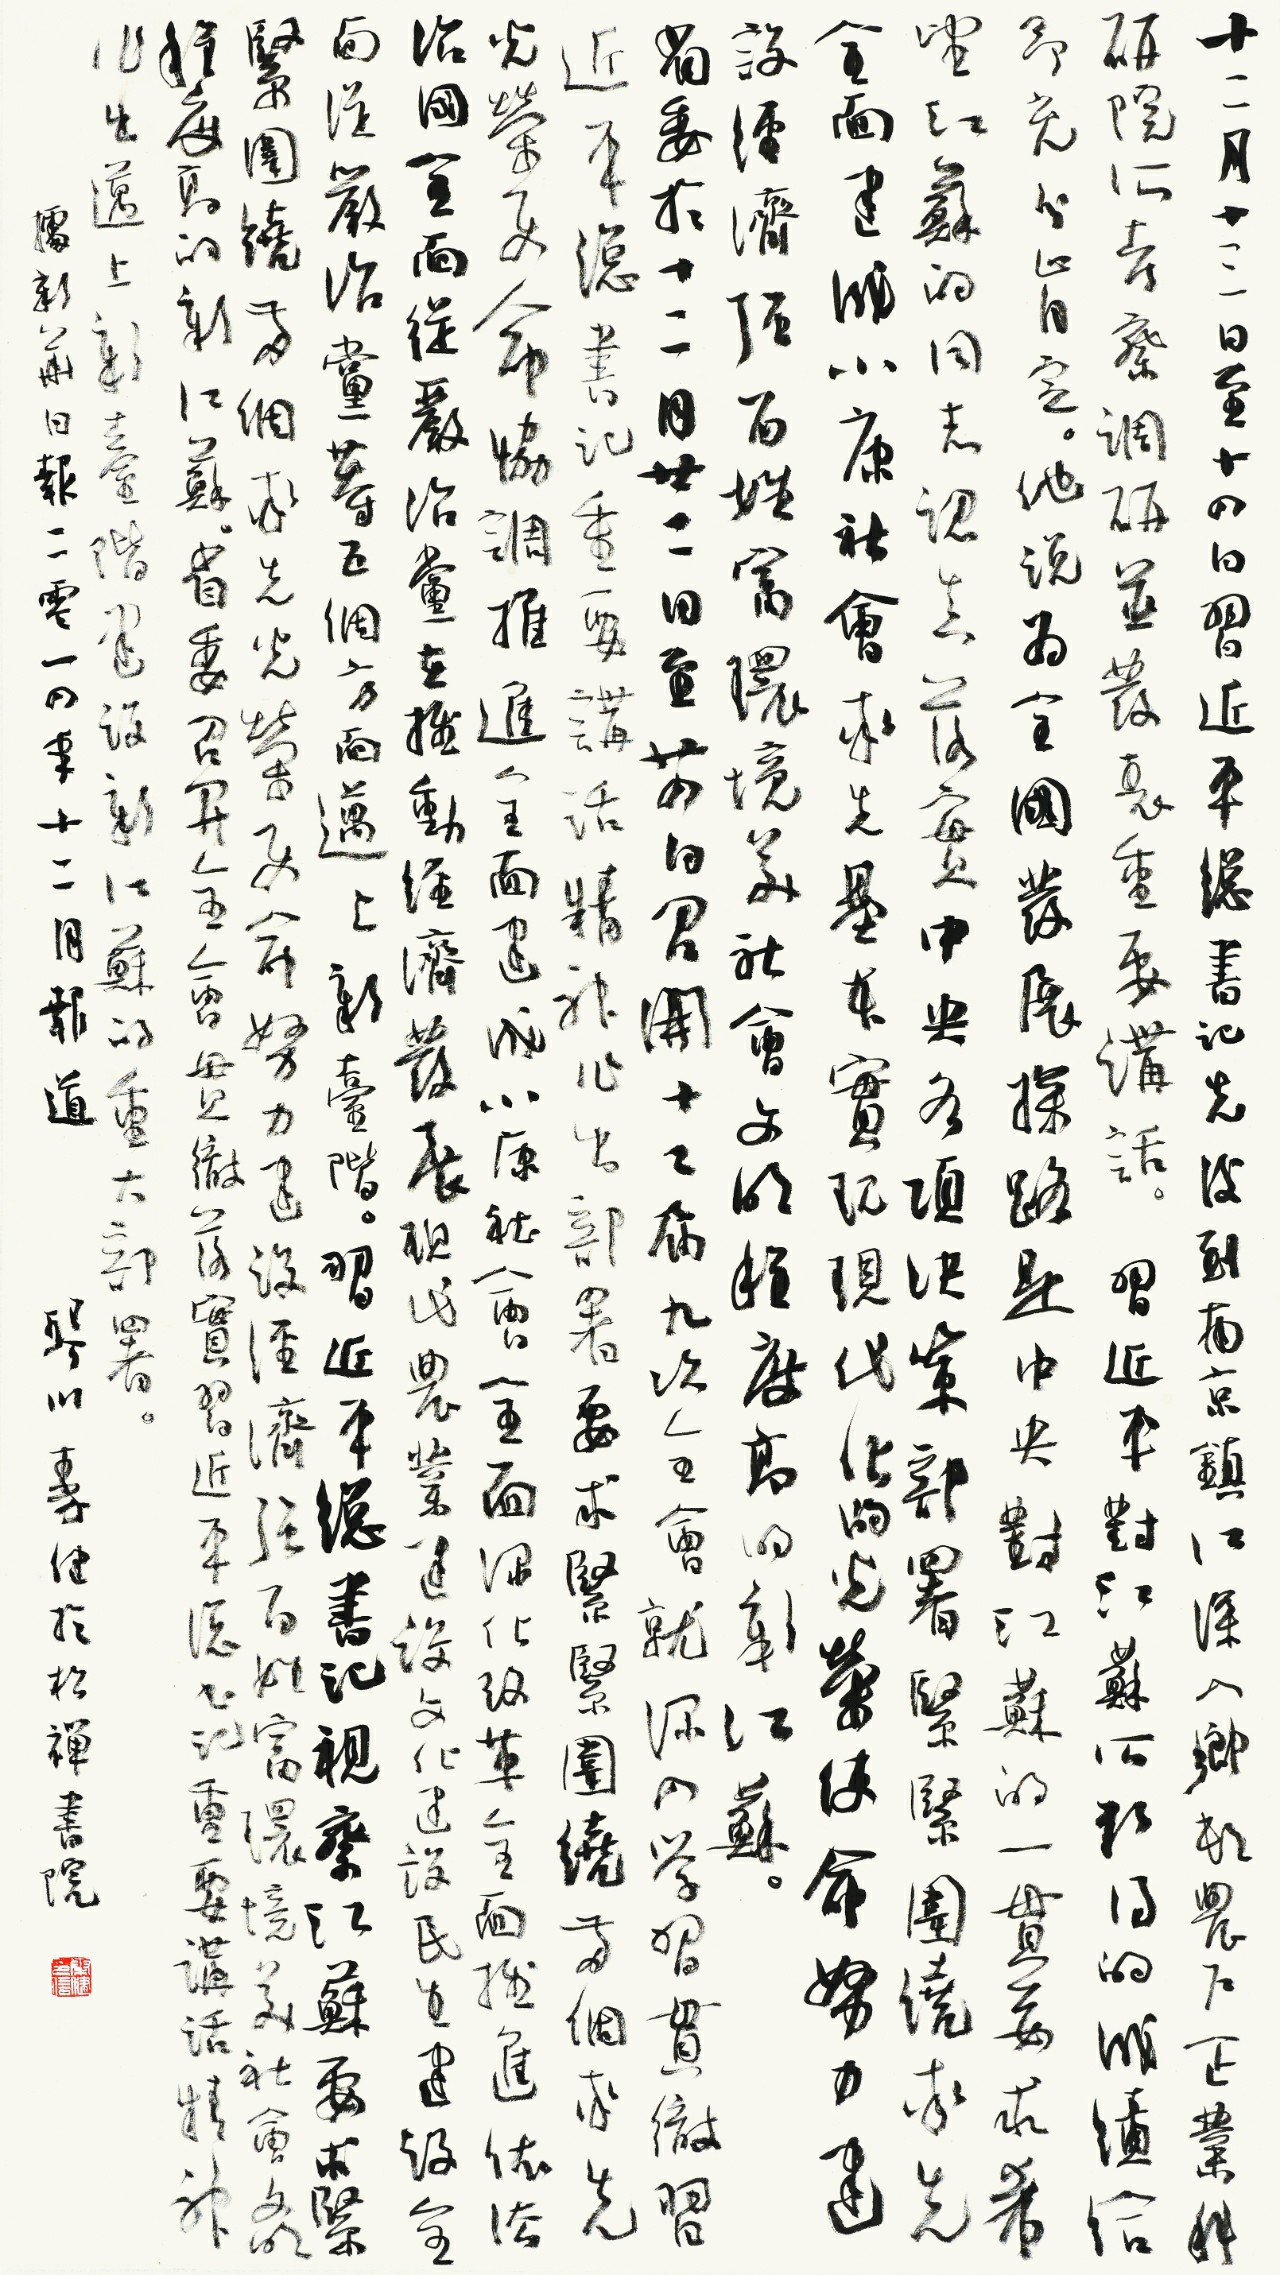 十二月十三日至十四日習近平總書記先後到南京鎮江深入鄉村農戶企業科
研院所考察調研並發表重要講話。習近平對江蘇所取得的成績給
予充分肯定。他說為全國發展探路是中央對江蘇的一貫要求希
望江蘇的同志認真落實中央各項決策部署緊緊圍繞率先
全面建成小康社會率先基本實現現代化的光榮使命努力建
設經濟強百姓富環境美社會文明程度高的新江蘇。
省委於十二月廿二日至廿四日召開十二屆九次全會就深入學習貫徹習
近平總書記重要講話精神作出部署要求緊緊圍繞兩個率先
光榮使命協調推進全面建成小康社會全面深化改革全面推進依法
治國全面從嚴治黨在推動經濟發展現代農業建設文化建設民生建設全
面從嚴治黨等五個方面邁上新臺階。習近平總書記視察江蘇要求緊
緊圍繞兩個率先光榮使命努力建設經濟強百姓富環境美社會文明
程度高的新江蘇。省委召開全會貫徹落實習近平總書記重要講話精神
作出邁上新臺階建設新江蘇的重大部署。
據新華日報二零一四年十二月報道 琴川 壽健於松禪書院